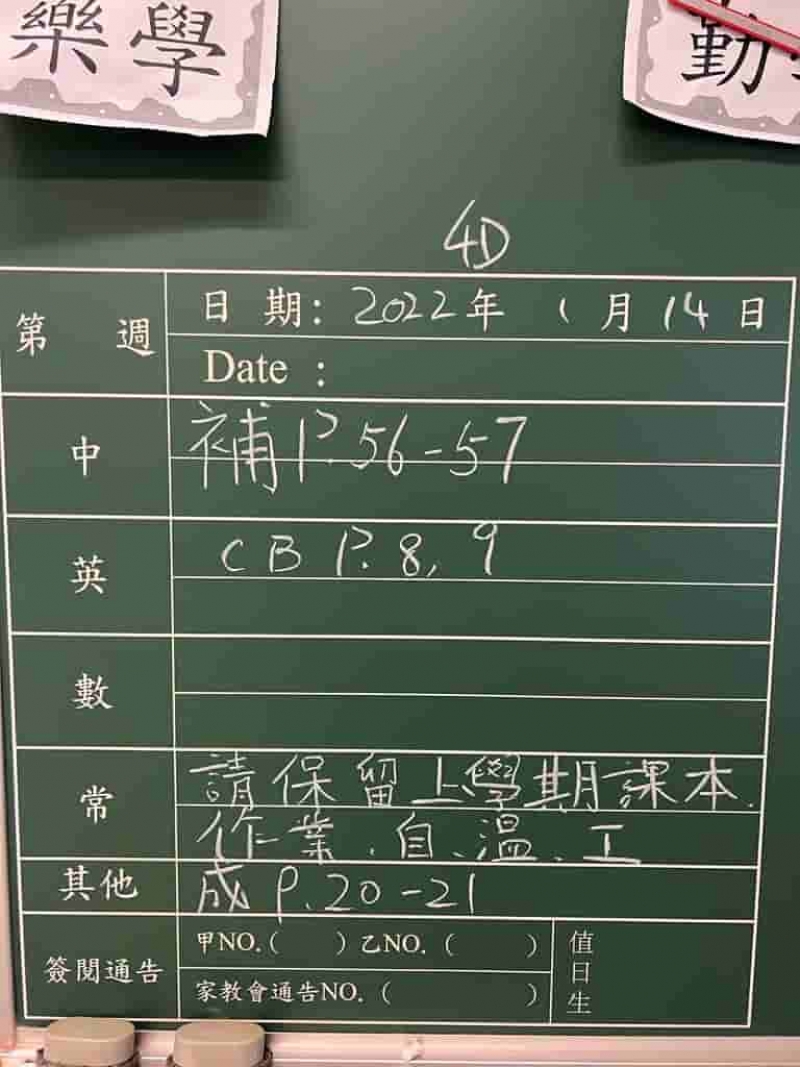 樂學
勤
4D
第 週
日期: 2022年 1月14日
Date :
中
補 P.56-57
英
CB P.8, 9
數
常
請保留上學期課本、
作業、自、溫、工
其他
成 P.20-21
簽閱通告
甲NO.( ) 乙NO. ( )
家教會通告NO. ( )
值日生